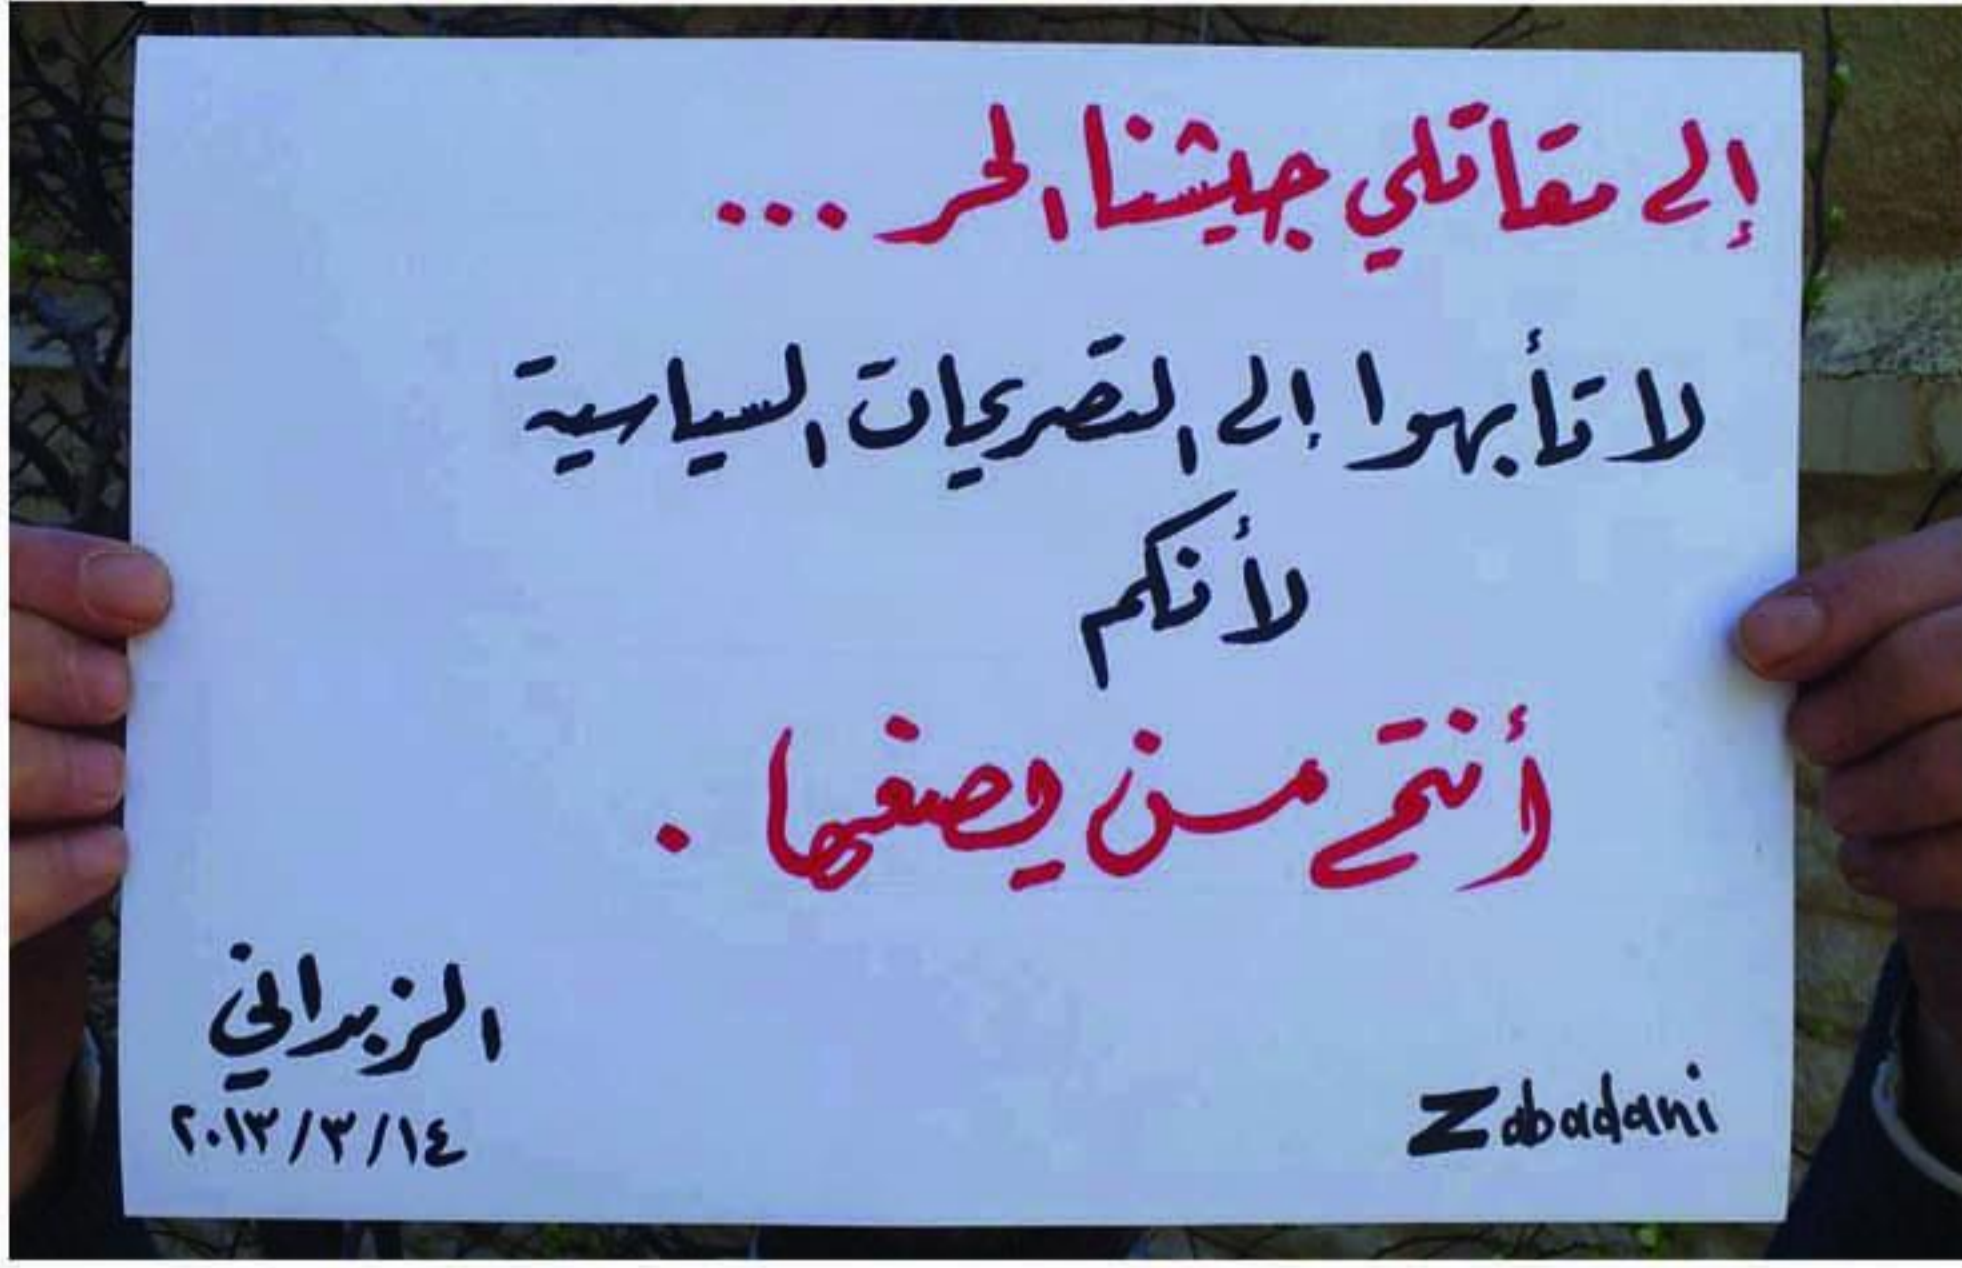 إلى مقاتلي جيشنا الحر ...
لا تأبهوا إلى التصريحات السياسية
لأنكم
أنتم من يصنعها .
الزبداني
٢٠١٣/٣/١٤
Zabadani